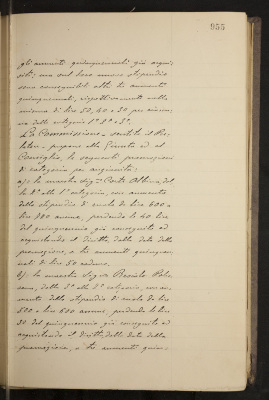 955
gli aumenti quinquennali già acqui-
siti; ma sul loro nuovo stipendio
sono conseguibili altri tre aumenti
quinquennali, rispettivamente nella
misura di lire 50, 40 e 30 per ciascu-
na delle categorie 1ª 2ª e 3ª.
La Commissione sentito il Re-
latore - propone alla Giunta ed al
Consiglio, le seguenti promozioni
di categoria per anzianità:
a): la maestra Sig.na Costa Albina, dal-
la 2ª alla 1ª categoria, con aumento
dello stipendio di ruolo da lire 600 a
lire 700 annue, perdendo le 40 lire
del quinquennio già conseguito ed
acquistando il diritto, dalla data della
promozione, a tre aumenti quinquen-
nali di lire 50 cadauno.
b): la maestra Sig.ra
dalla 3ª alla 2ª categoria, con au-
mento dello stipendio di ruolo da lire
500 a lire 600 annue, perdendo le lire
30 del quinquennio già conseguito ed
acquistando il diritto, dalla data della
promozione, a tre aumenti quin-